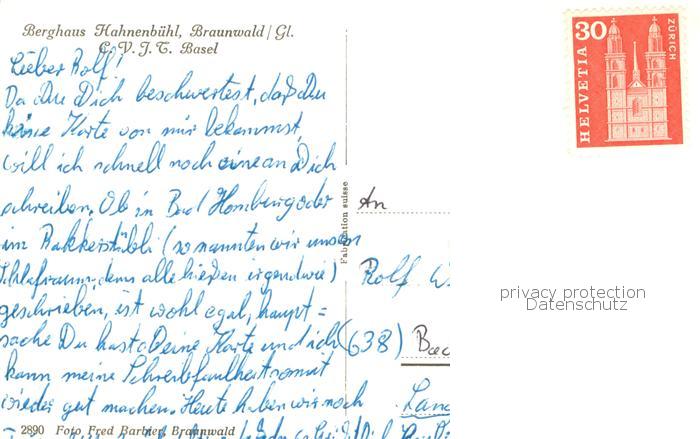 Berghaus Hahnenbühl, Braunwald / Gl.
C. V. J. T. Basel
Lieber Rolf!
Da Du Dich beschwertest, daß Du
keine Karte von mir bekommst,
will ich schnell noch eine an Dich
schreiben. Ob in Bad Homburg oder
im (so nannten wir unsren
Schlafraum, denn alle hießen irgendwie)
geschrieben, ist wohl egal, haupt=
sache Du hast Deine Karte und ich
kann meine Schreibfaulheit somit
wieder gut machen. Heute haben wir noch
2890 Foto Fred Barbier, Braunwald
Fabrication suisse
An
Rolf
(638) Bad
HELVETIA 30 ZÜRICH
privacy protection
Datenschutz